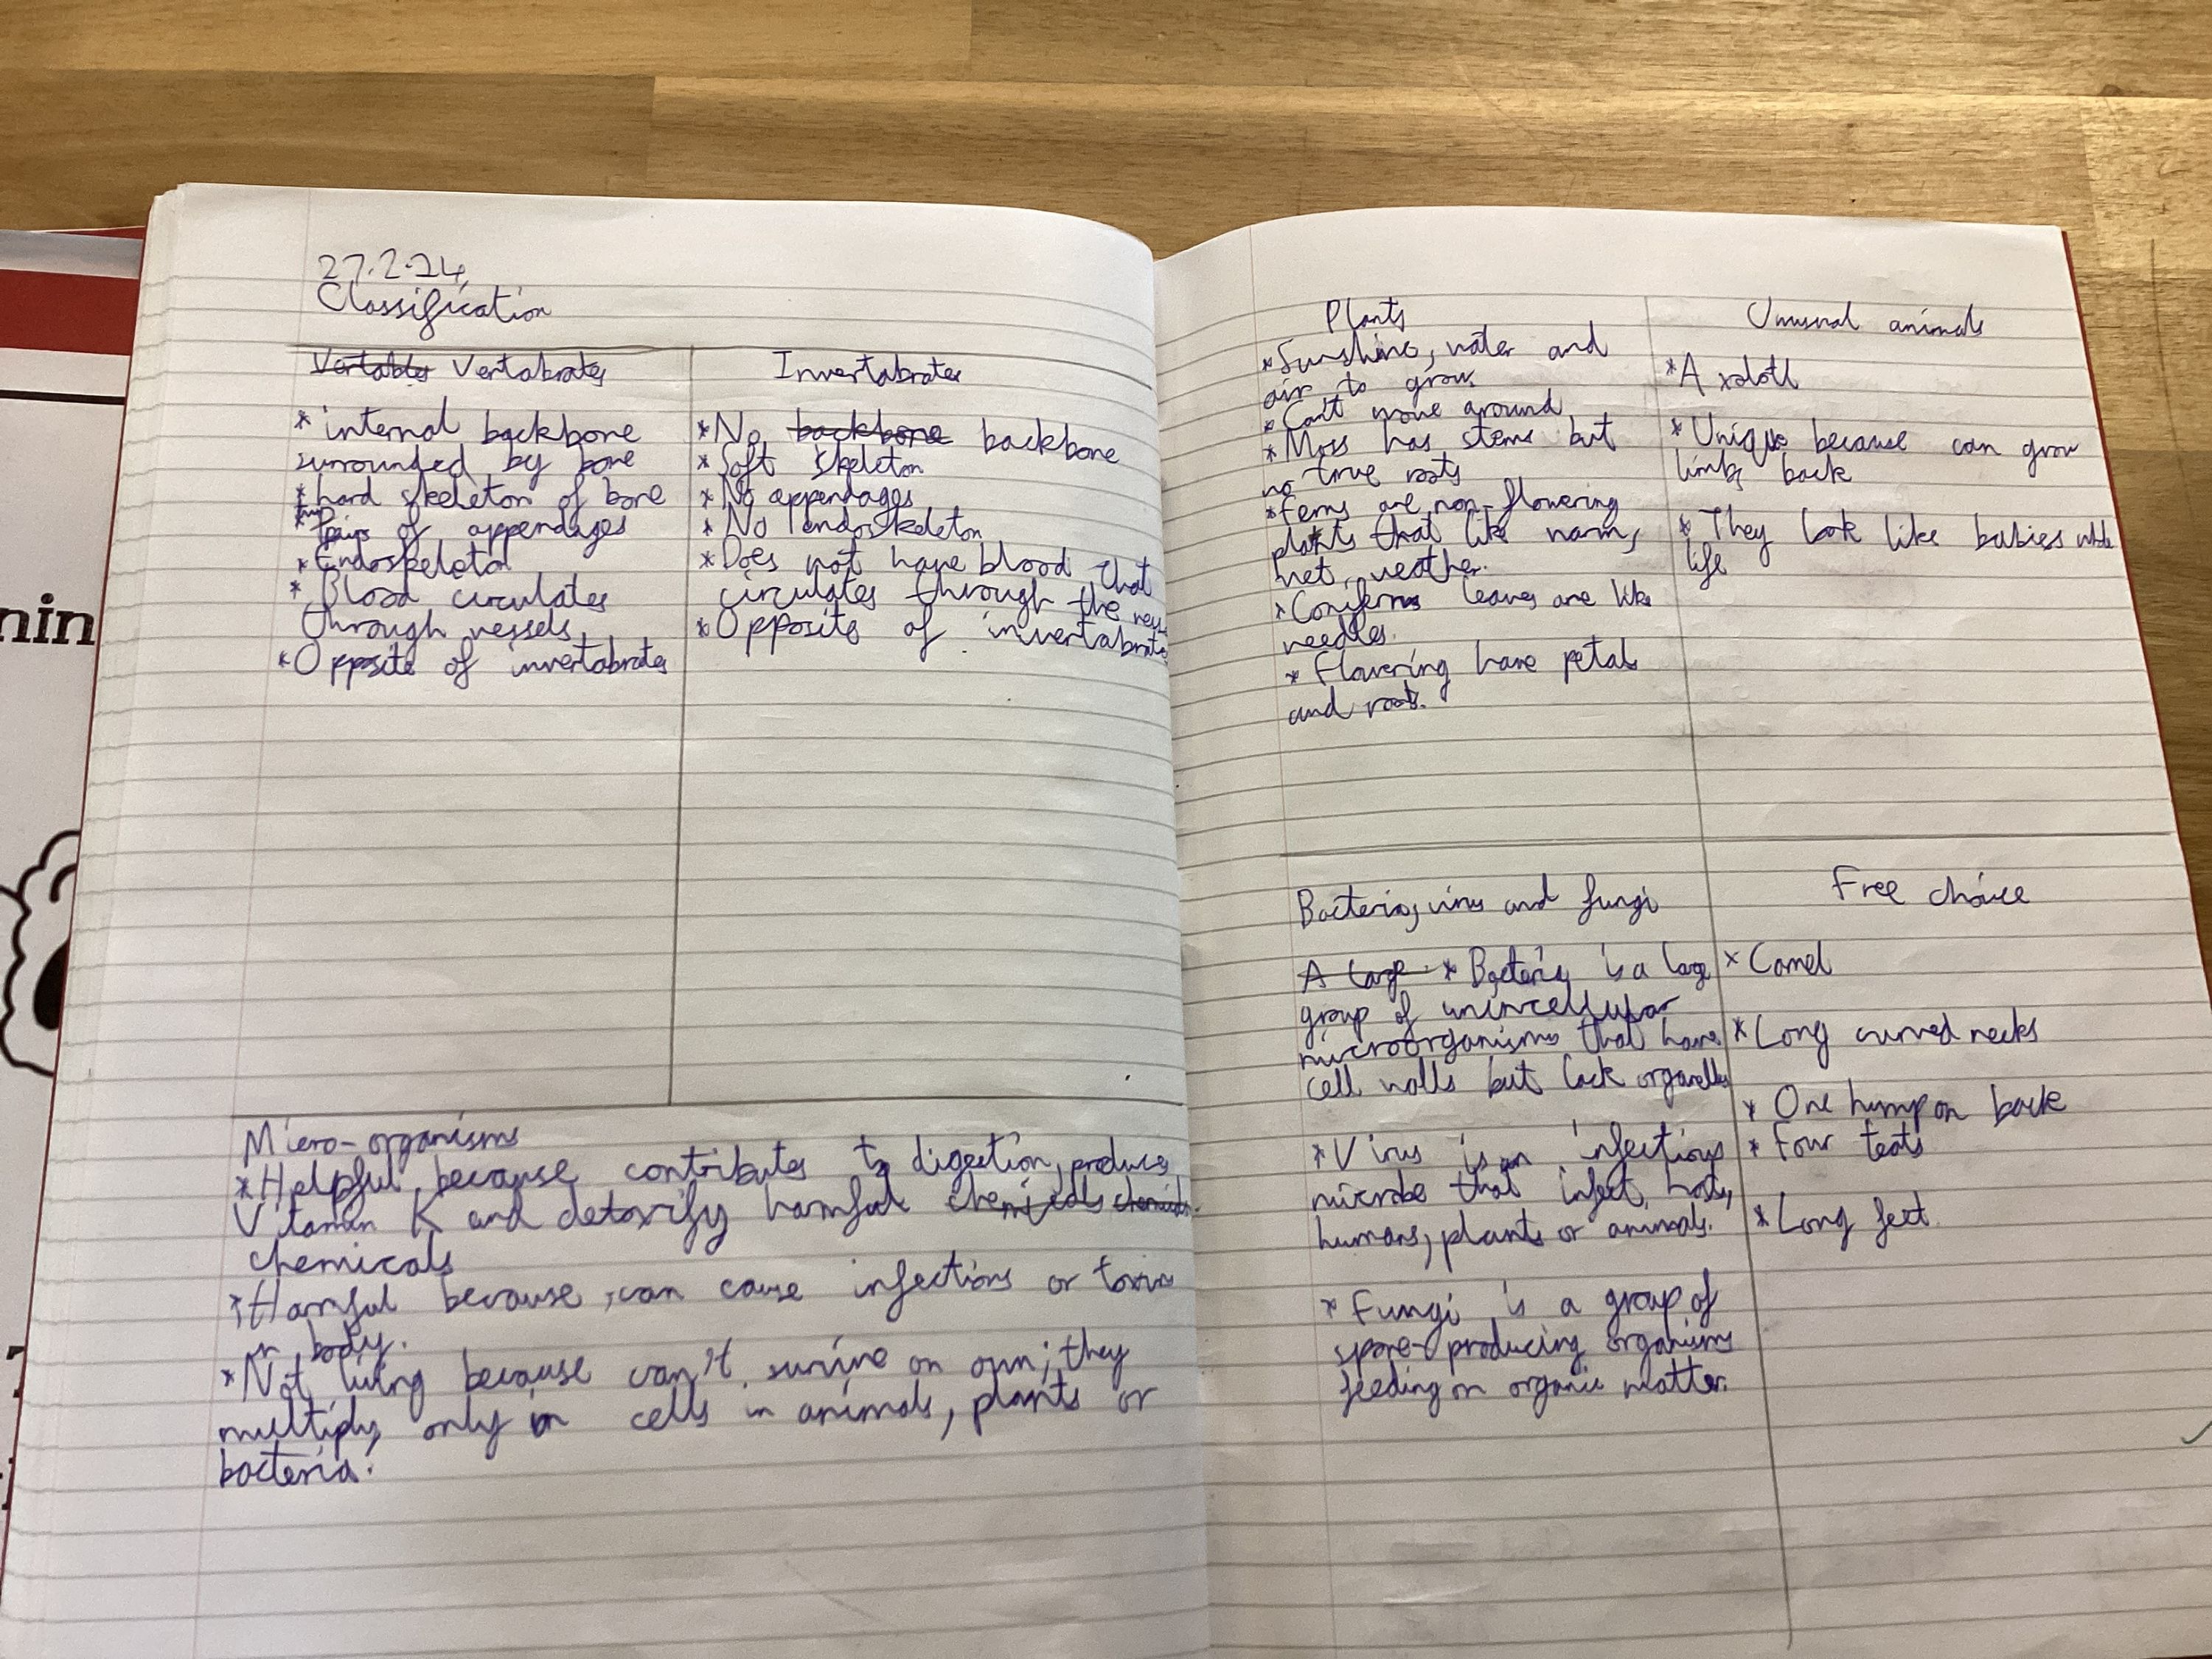 27.2.24
Classification
Vertables Vertabrates
* internal backbone
surrounded by bone
* hard skeleton of bone
* Pairs of appendages
* Endoskeleton
* Blood circulates
through vessels
* Opposite of invertabrates
Invertabrates
* No backbone backbone
* Soft skeleton
* No appendages
* No endoskeleton
* Does not have blood that
circulates through the
* Opposite of invertabrates
Micro-organisms
* Helpful because contributes to digestion, produces
Vitamin K and detoxify harmful chemicals chemicals
chemicals
* Harmful because, can cause infections or toxins
in body.
* Not living because can't survive on own; they
multiply only in cells in animals, plants or
bacteria.
Plants
* Sunshine, water and
air to grow
* Can't move around
* Moss has stems but
no true roots
* Ferns are non-flowering
plants that like warm,
wet, weather.
* Coniferns leaves are like
needles.
* Flowering have petals
and roots.
Unusual animals
* Axolotl
* Unique because can grow
limbs back
* They look like babies whole
life
Bacteria, virus and fungi
A large * Bacteria is a large
group of unincellular
microorganisms that have
cell walls but lack organelles
* Virus is an infectious
microbe that infect, hosts,
humans, plants or animals.
* Fungi is a group of
spore-producing organisms
feeding on organic matter.
Free choice
* Camel
* Long curved necks
* One hump on back
* Four teats
* Long feet
nin